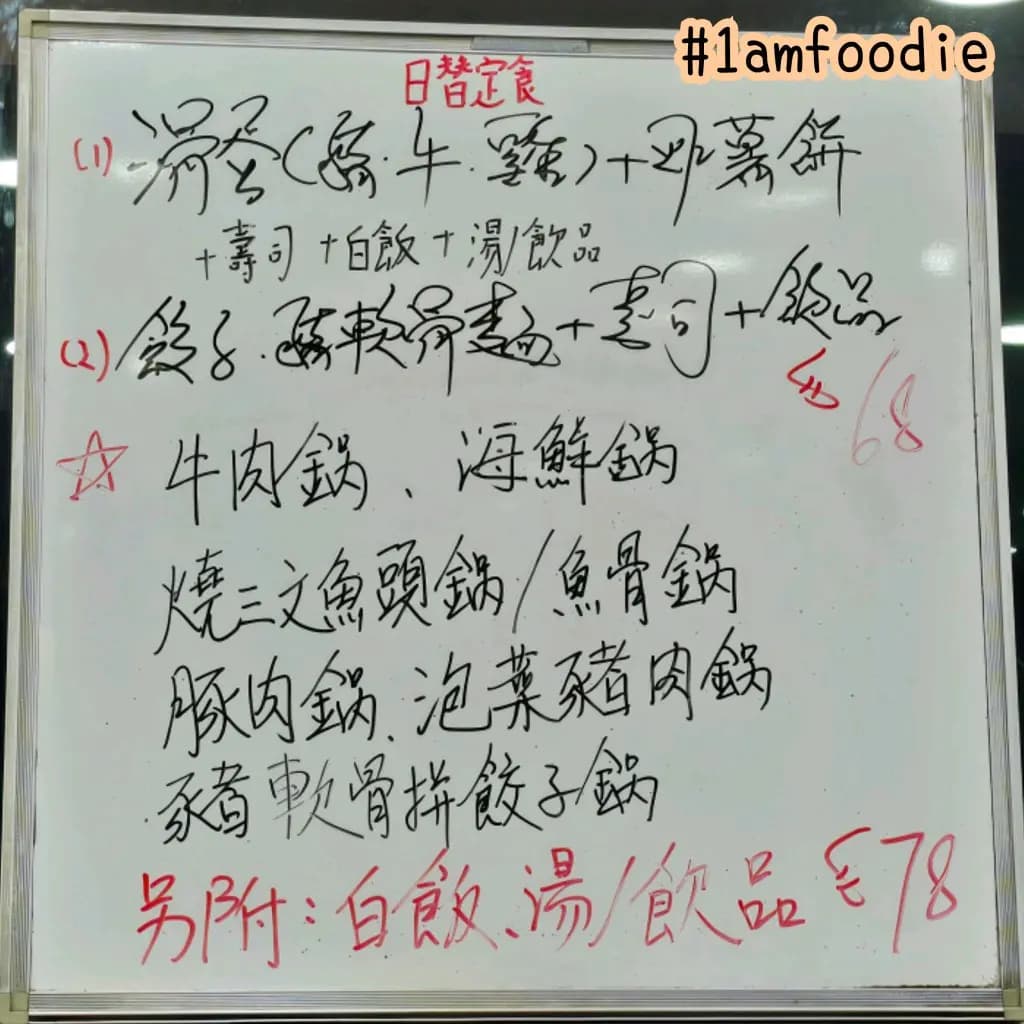 #1amfoodie
日替定食
(1) 滑蛋(豬.牛.雞)+薯餅
+壽司+白飯+湯/飲品
(2) 餃子.豬軟骨麵+壽司+飲品
68
☆ 牛肉鍋、海鮮鍋
燒三文魚頭鍋/魚骨鍋
豚肉鍋、泡菜豬肉鍋
豬軟骨拼餃子鍋
另附:白飯、湯/飲品 78